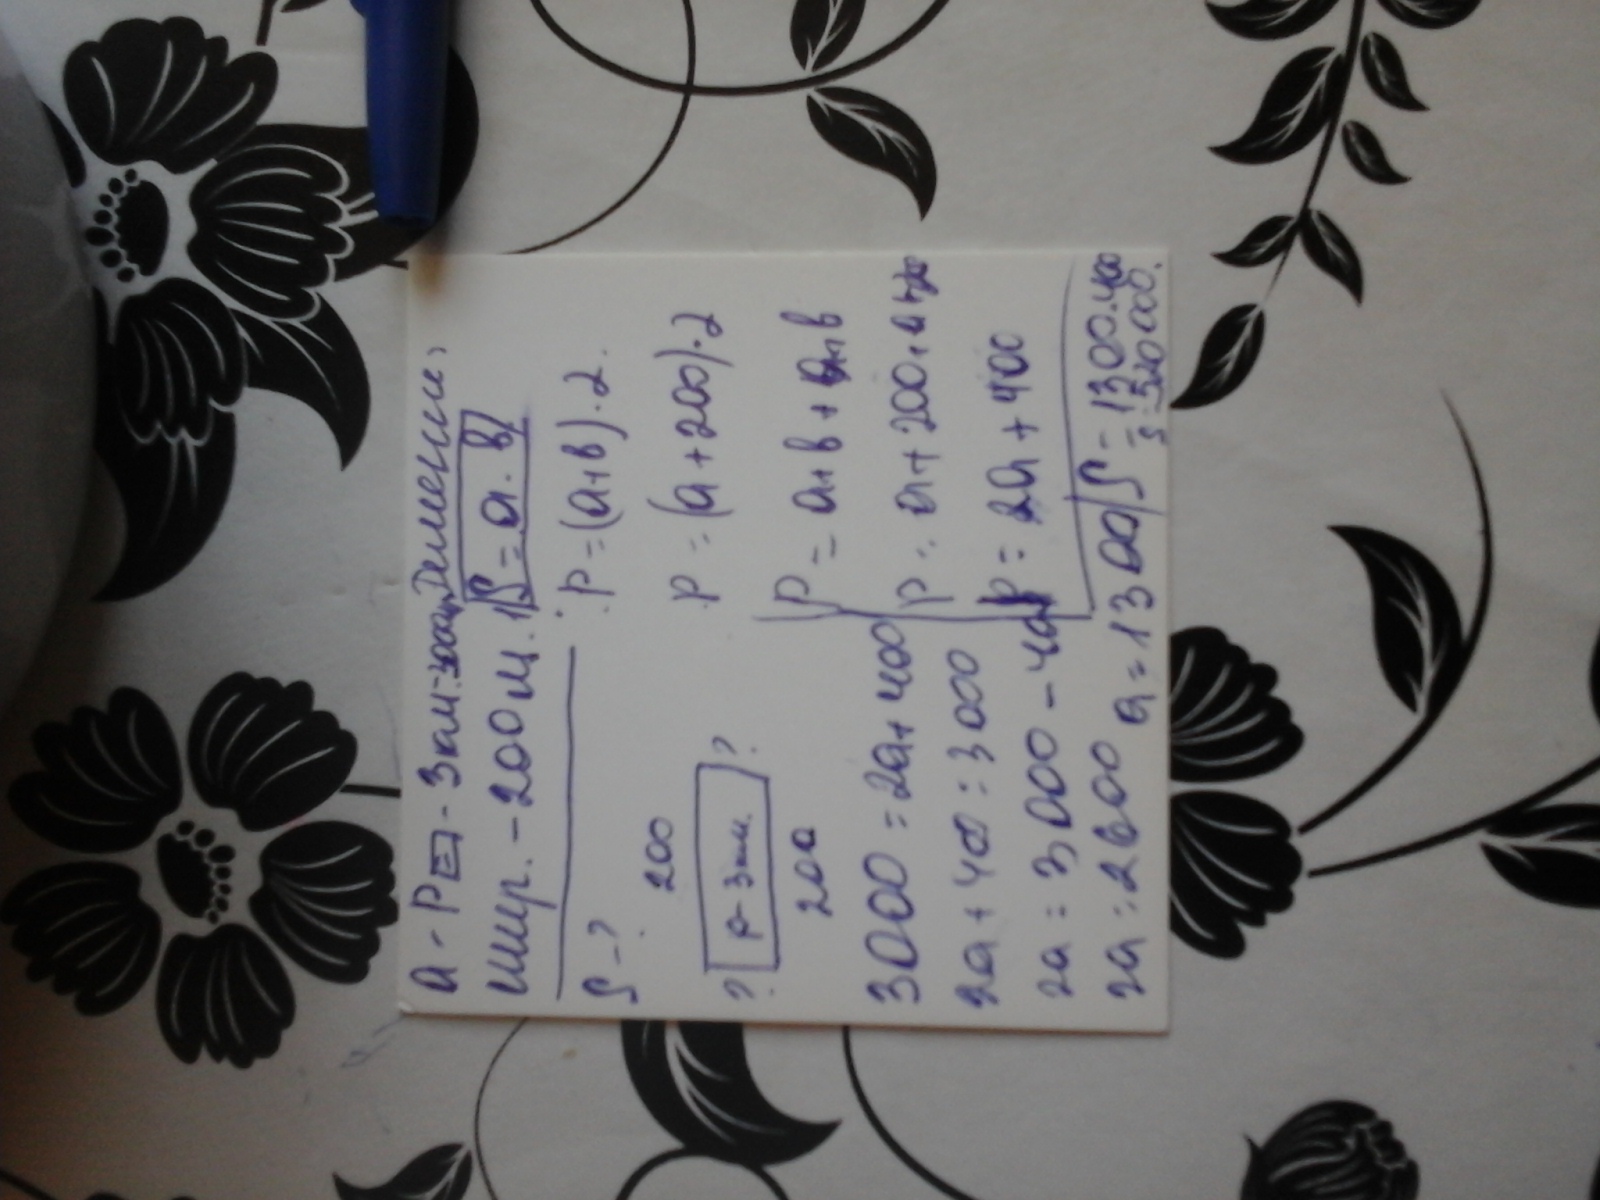 a - P▭ - 3 км = 3000м
шир. - 200 м. S = a · в
S - ? P = (a+в) · 2.
200 P = (a + 200) · 2
? P - 3 км. ?
200 P = a + в + a + в
3000 = 2a + 400 P = a + 200 + a + 200
2a + 400 = 3000 P = 2a + 400
2a = 3000 - 400
2a = 2600 a = 1300 S = 1300 · 400
S = 520 000.